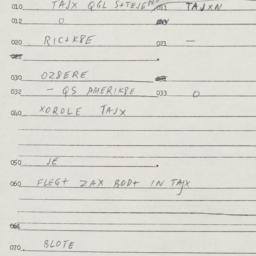 010 TAJX QGL S+TEJE 011 TAJXN
012 0
020 RIC+K8E 021 —
030 OZ8ERE
032 — QS AMERIK8E 033 0
040 XOROLE TAJX
050 JE
060 FLEG+ ZAX BOD+ IN TAJX
070 BLOTE